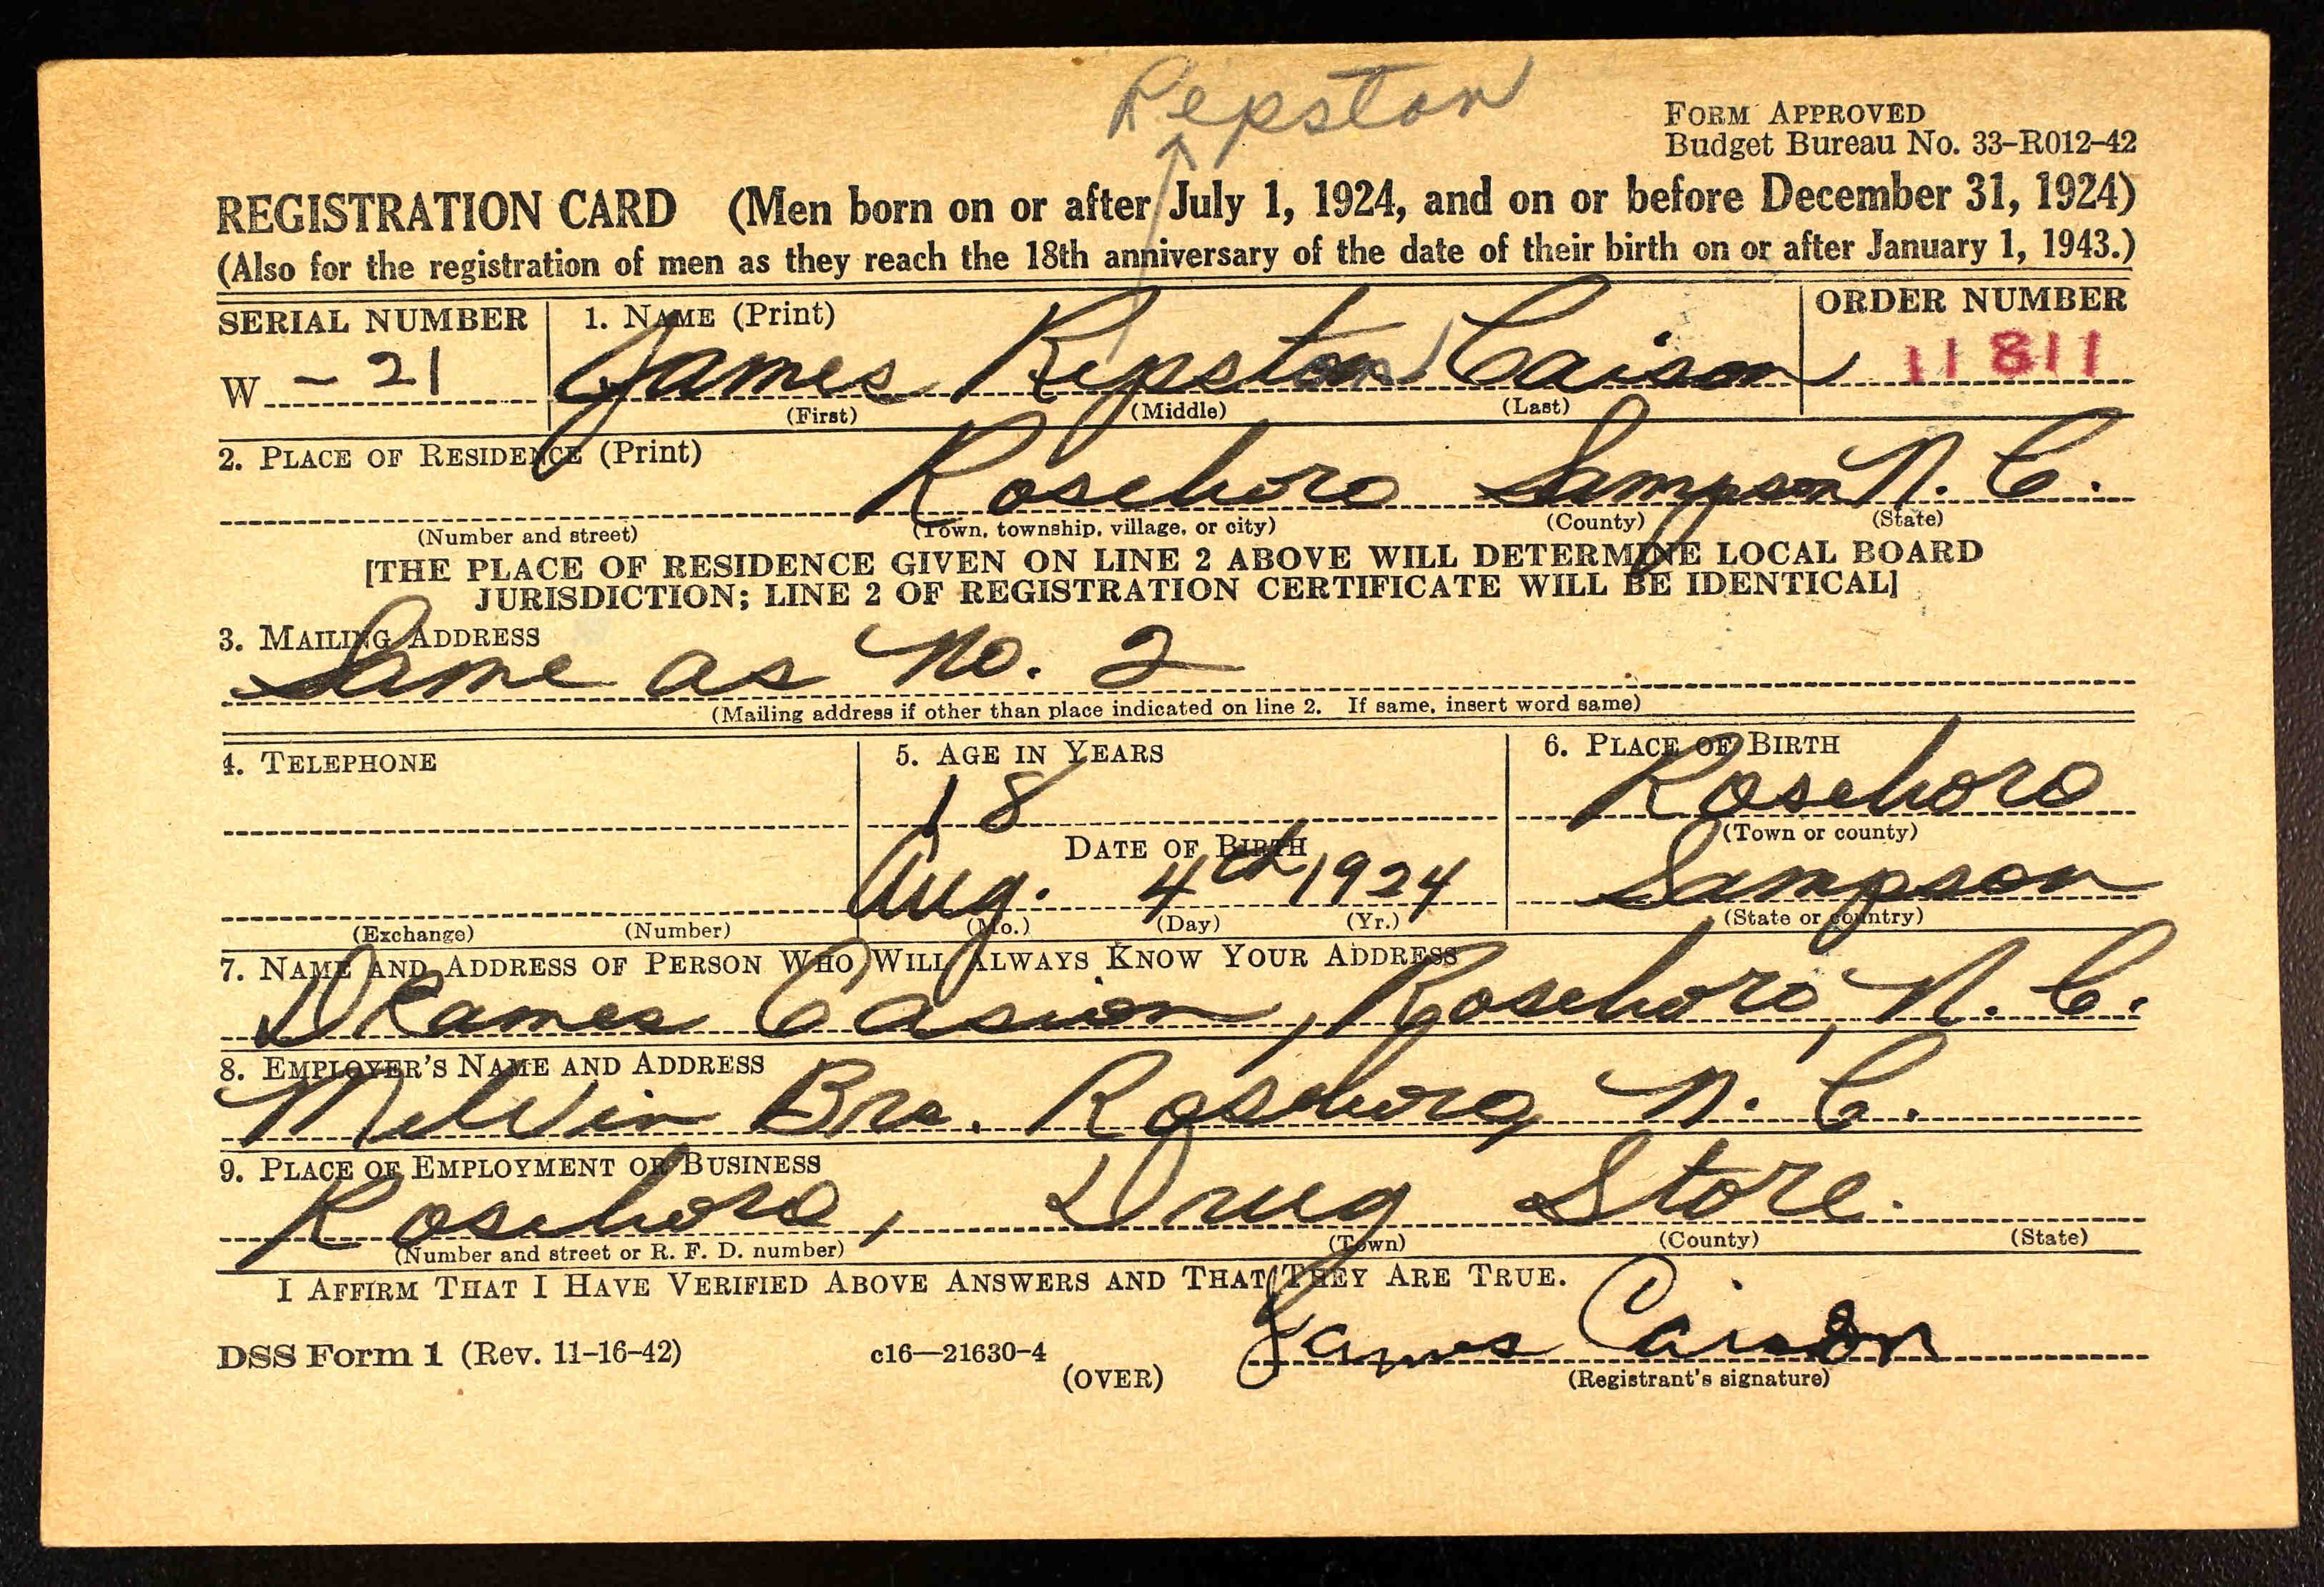 Repston
FORM APPROVED
Budget Bureau No. 33-R012-42
REGISTRATION CARD (Men born on or after July 1, 1924, and on or before December 31, 1924)
(Also for the registration of men as they reach the 18th anniversary of the date of their birth on or after January 1, 1943.)
SERIAL NUMBER 1. NAME (Print) ORDER NUMBER
W - 21 James Ripston Caison 11811
(First) (Middle) (Last)
2. PLACE OF RESIDENCE (Print)
Roseboro Sampson N. C.
(Number and street) (Town, township, village, or city) (County) (State)
[THE PLACE OF RESIDENCE GIVEN ON LINE 2 ABOVE WILL DETERMINE LOCAL BOARD
JURISDICTION; LINE 2 OF REGISTRATION CERTIFICATE WILL BE IDENTICAL]
3. MAILING ADDRESS
Same as No. 2
(Mailing address if other than place indicated on line 2. If same, insert word same)
4. TELEPHONE 5. AGE IN YEARS 6. PLACE OF BIRTH
18 Roseboro
(Town or county)
DATE OF BIRTH
Aug. 4th 1924 Sampson
(Exchange) (Number) (Mo.) (Day) (Yr.) (State or country)
7. NAME AND ADDRESS OF PERSON WHO WILL ALWAYS KNOW YOUR ADDRESS
Casion, Roseboro, N. C.
8. EMPLOYER'S NAME AND ADDRESS
Melvin Bro. Roseboro, N. C.
9. PLACE OF EMPLOYMENT OR BUSINESS
Roseboro, Drug Store.
(Number and street or R. F. D. number) (Town) (County) (State)
I AFFIRM THAT I HAVE VERIFIED ABOVE ANSWERS AND THAT THEY ARE TRUE.
James Caison
DSS Form 1 (Rev. 11-16-42) c16—21630-4
(OVER) (Registrant's signature)